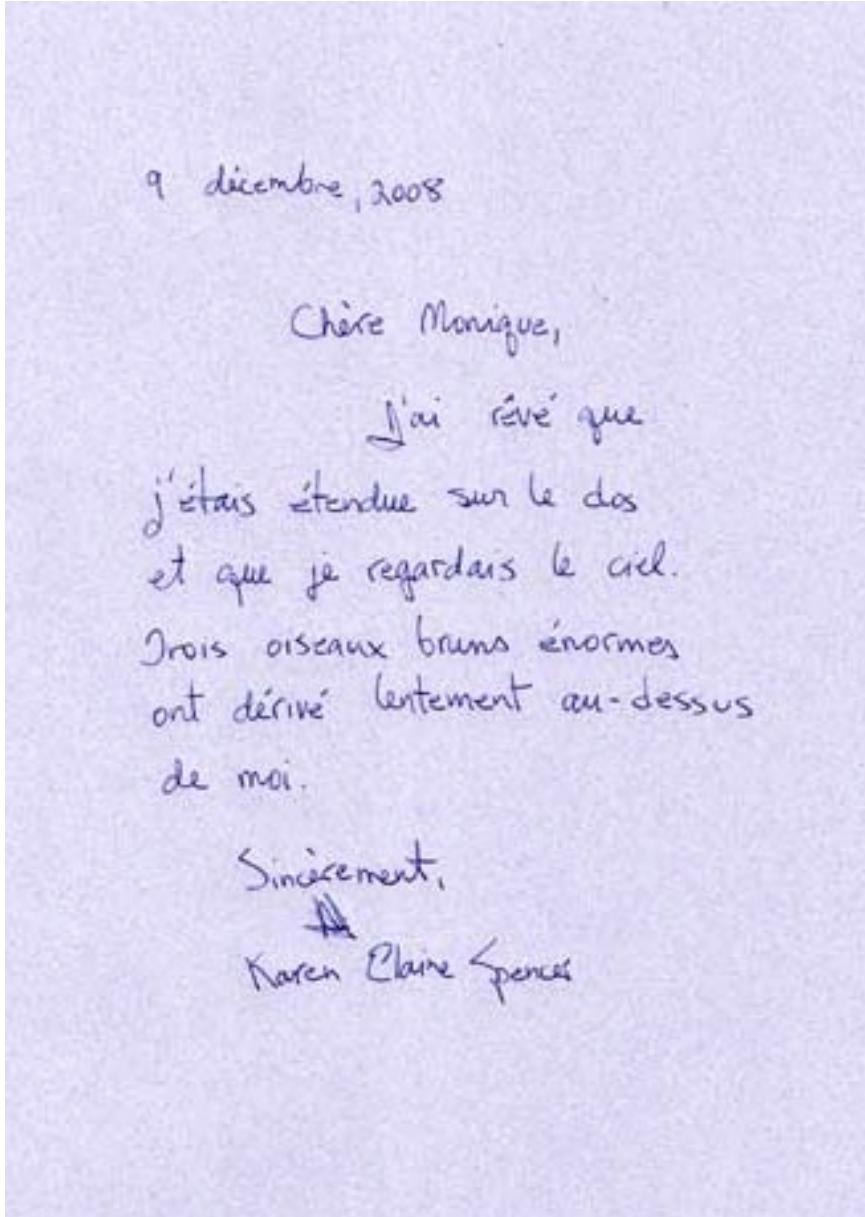 9 décembre, 2008
Chère Monique,
J'ai rêvé que
j'étais étendue sur le dos
et que je regardais le ciel.
Trois oiseaux bruns énormes
ont dérivé lentement au-dessus
de moi.
Sincèrement,
Karen Elaine Spencer